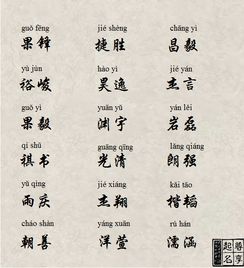 guǒ fēng jié shèng chāng yì
果锋 捷胜 昌毅
yù jùn hào yì jié yán
裕峻 昊逸 杰言
guǒ yì yuān yǔ yán lěi
果毅 渊宇 岩磊
qí shū guāng qīng lǎng qiáng
祺书 光清 朗强
yǔ qìng jié xiáng kǎi tāo
雨庆 杰翔 楷韬
cháo shàn yáng xuān rú hán
朝善 洋萱 濡涵
起名